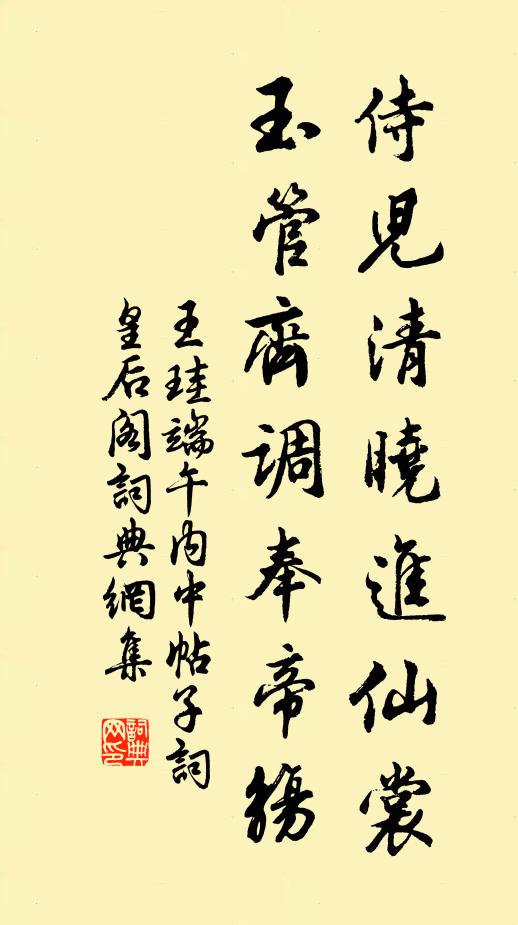 侍兒清曉進仙裳
玉管齊調奉帝觴
王珪端午內中帖子詞
皇后阁詞典網集
詞典
网印